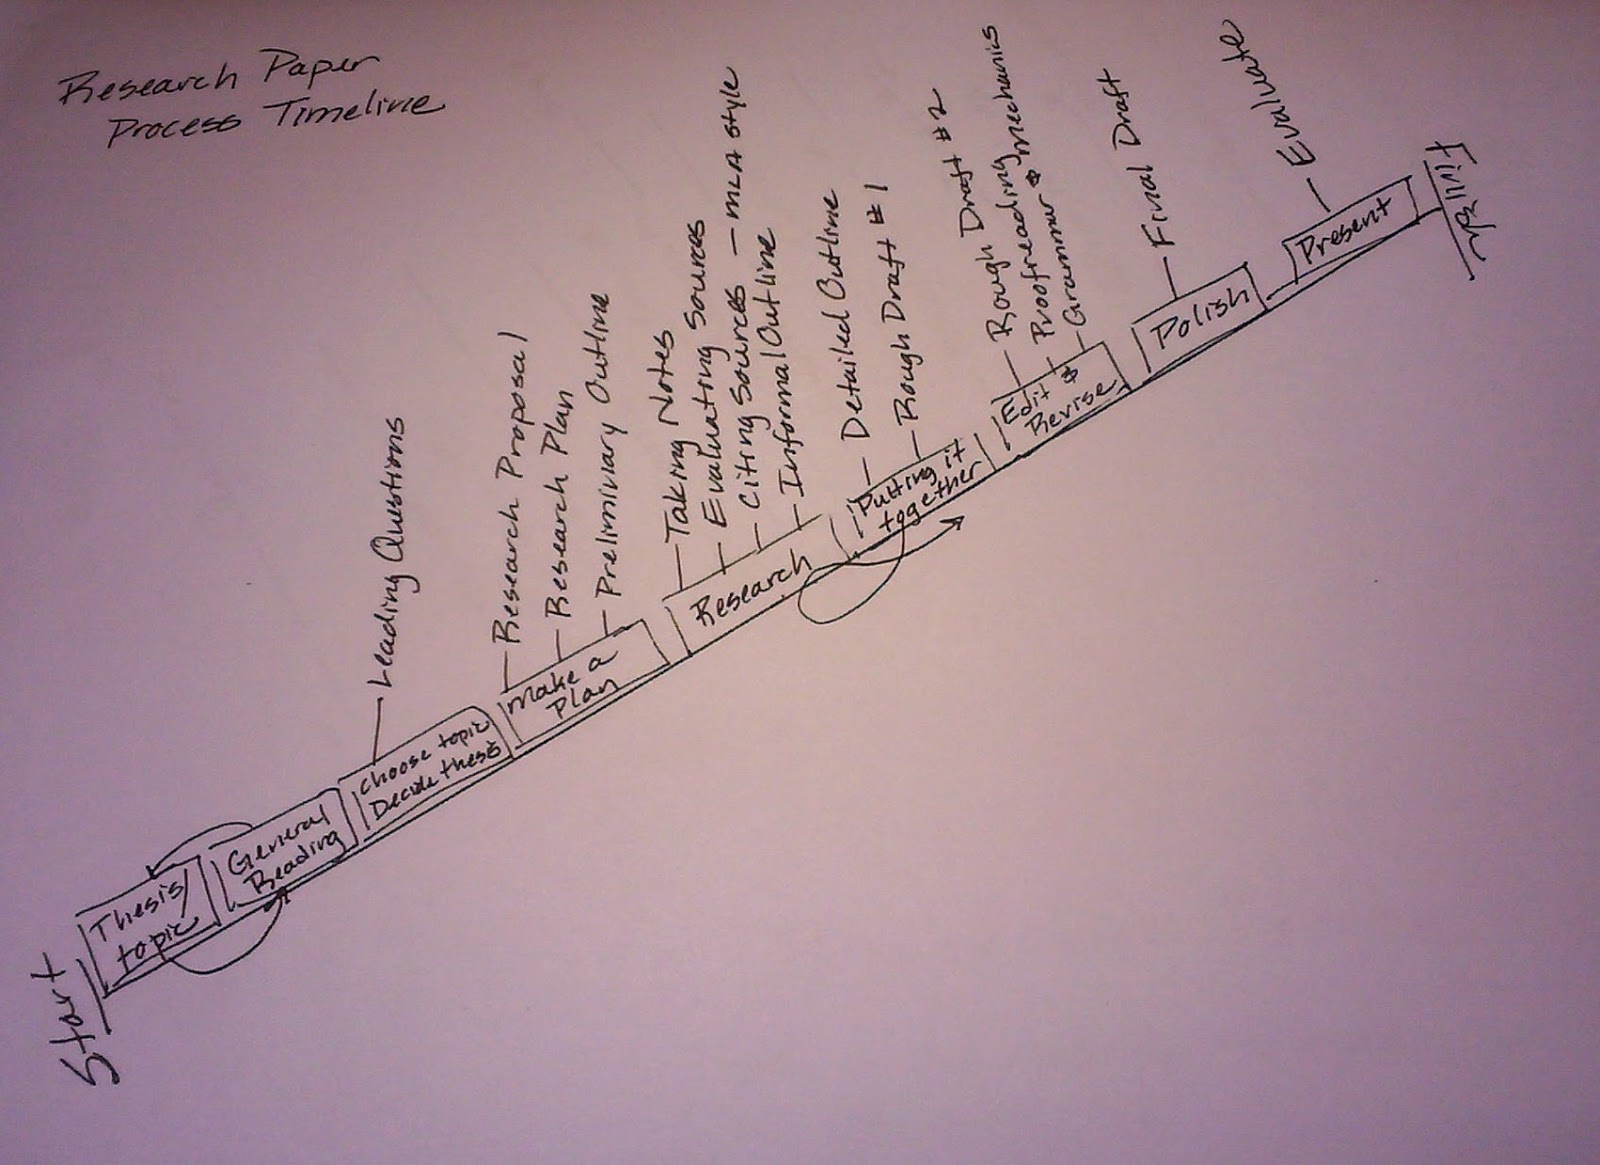 Research Paper
Process Timeline
Start
Thesis/
topic
General
Reading
choose topic
Decide thesis
Leading Questions
make a
Plan
Research Proposal
Research Plan
Preliminary Outline
Research
Taking Notes
Evaluating Sources
Citing Sources — MLA style
Informal Outline
Putting it
together
Detailed Outline
Rough Draft #1
Edit &
Revise
Rough Draft #2
Proofreading
Grammar & Mechanics
Polish
Final Draft
Present
Evaluate
Finish